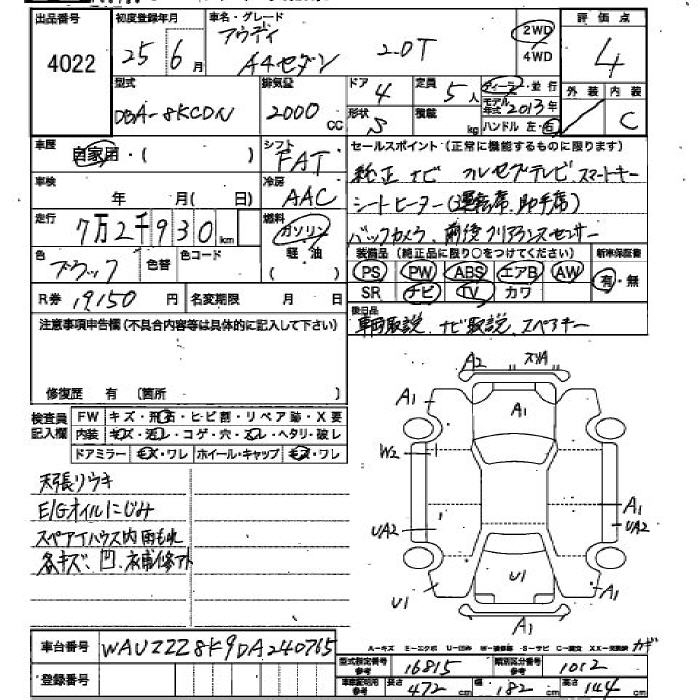 出品番号 初度登録年月 車名・グレード 評価点
4022 25 6月 アウディ A4セダン 2.0T 2WD 4WD 4
型式 排気量 ドア 4 定員 5人 ディーラー・並行 外装 内装
DBA-8KCDN 2000cc 形状 S 積載 kg モデル年式 2013年 ハンドル 左・右 C
車歴 自家用・( ) シフト FAT セールスポイント(正常に機能するものに限ります)
車検 年 月( 日) 冷房 AAC 純正ナビ フルセグテレビ スマートキー
シートヒーター(運転席、助手席)
走行 7万2千930km 燃料 ガソリン 軽油 バックカメラ、前後クリアランスセンサー
色 ブラック 色替 色コード 装備品(純正品に限り○をつけてください) 新車保証書
PS PW ABS エアB AW 有・無
R券 19150円 名変期限 月 日 SR ナビ TV カワ
注意事項申告欄(不具合内容等は具体的に記入して下さい) 後日品
車両取説、ナビ取説、スペアキー
修復歴 有 [箇所
検査員記入欄 FW キズ・飛石・ヒビ割・リペア跡・X要
内装 キズ・汚レ・コゲ・穴・スレ・ヘタリ・破レ
ドアミラー キズ・ワレ ホイール・キャップ キズ・ワレ
天張リウキ
E/Gオイルにじみ
スペアTハウス内雨もれ
各キズ、凹、補修外
A2 スリA
A1 A1
W2
UA2 A1
UA2
U1 U1 A1
A1
A-キズ E-エクボ U-凹み W-補修跡 S-サビ C-腐食 XX-交換済 カギ
車台番号 WAUZZZ8K9DA240765
登録番号 型式指定番号 参考 16815 類別区分番号 参考 1012
車検証明用 参考 長さ 472 幅 182 高さ 144